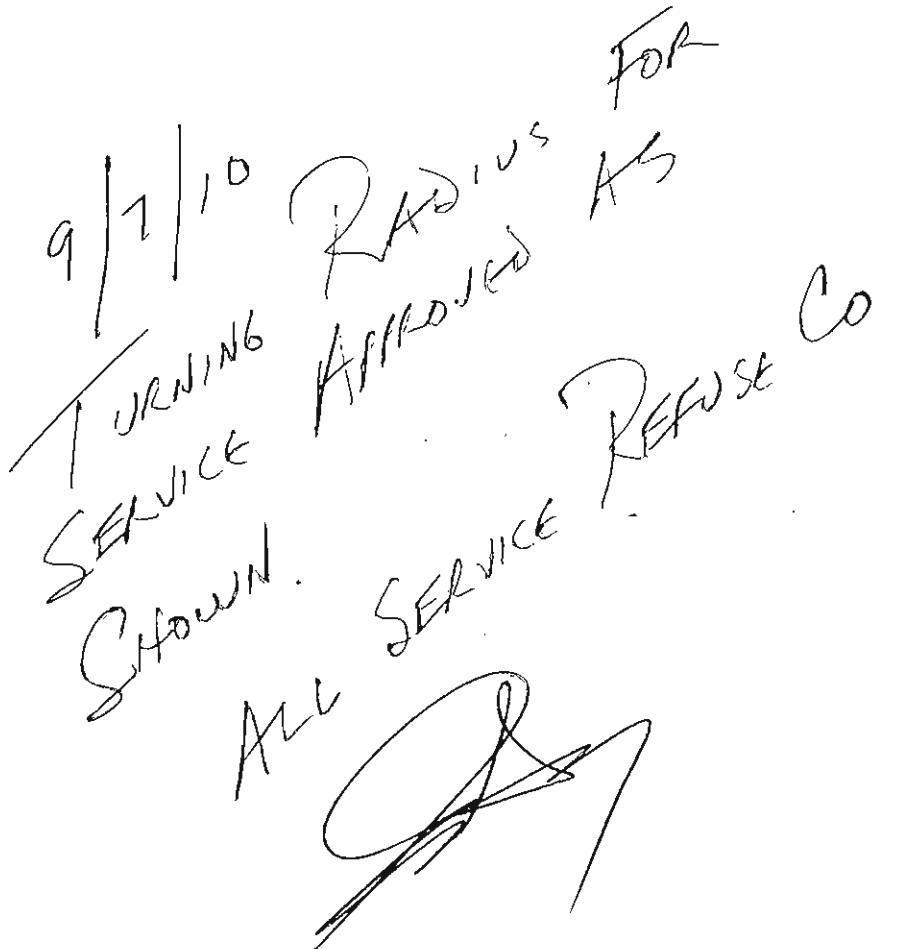 9/7/10
TURNING RADIUS FOR
SERVICE APPROVED AS
SHOWN.
ALL SERVICE REFUSE CO